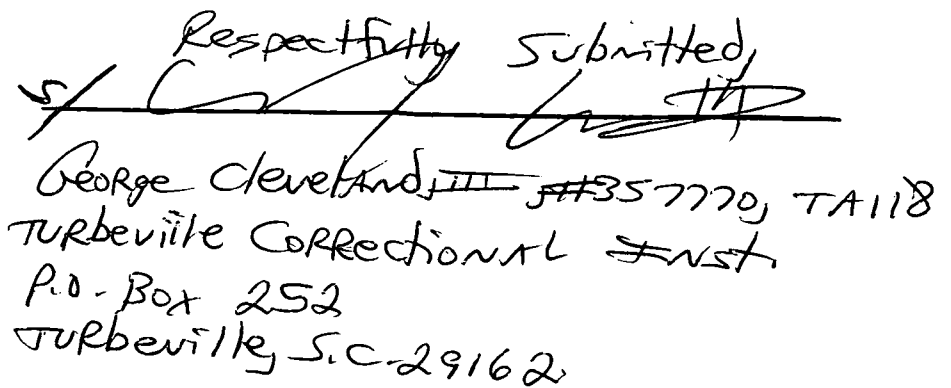 Respectfully Submitted,
s/
George Cleveland, III #357770, TA118
Turbeville Correctional Inst.
P.O. Box 252
Turbeville, S.C. 29162